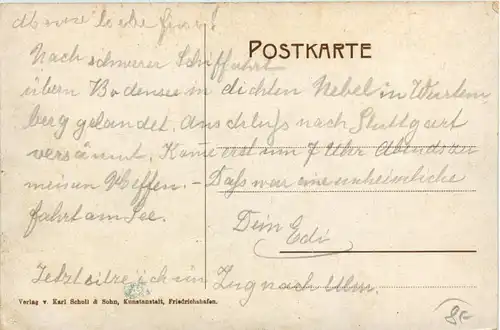 Meine liebe Frau!
POSTKARTE
Nach schwerer Schiffahrt
übern Bodensee in dichten Nebel in Würtem-
berg gelandet. Anschluß nach Stuttgart
versäumt. Kome erst um 7 Uhr Abends zu
meinen Neffen. - Daß war eine unheimliche
Fahrt am See.
Dein
Edi
Jetzt sitze ich im Zug nach Ulm.
Verlag v. Karl Scholl & Sohn, Kunstanstalt, Friedrichshafen.